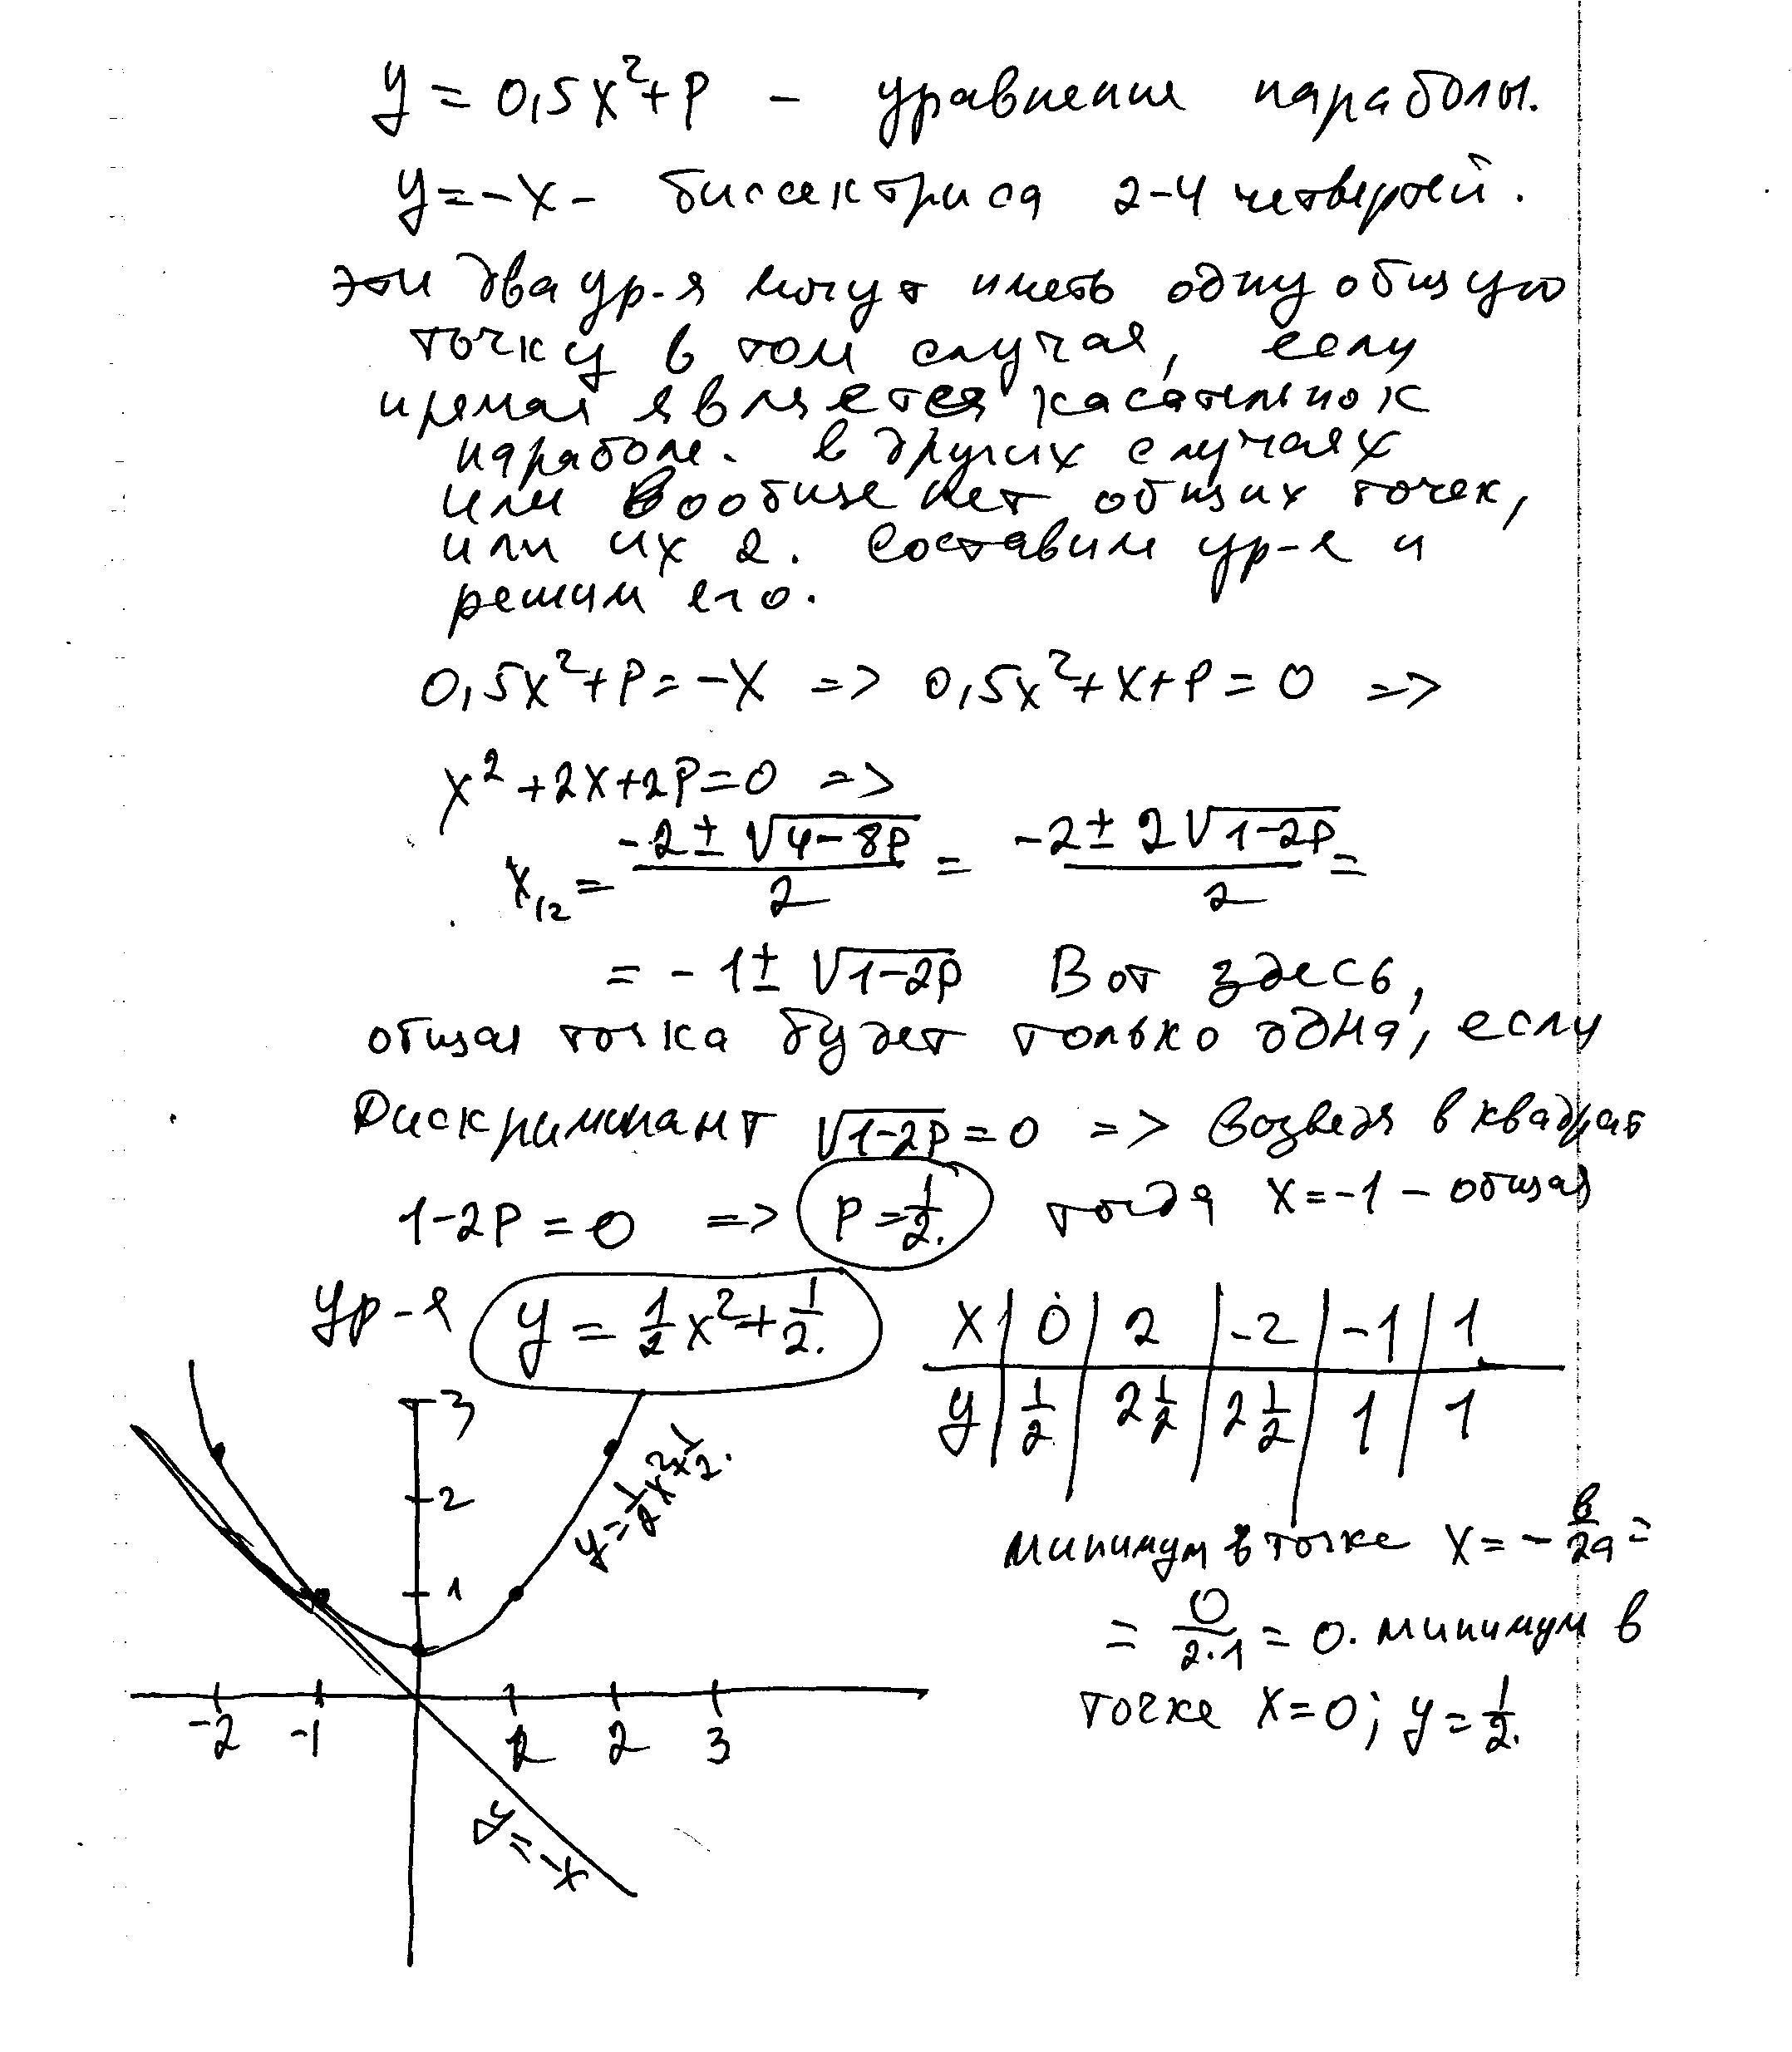 y = 0,5x²+p – уравнение параболы.
y=-x – биссектриса 2-4 четвертей.
эти два ур-я могут иметь одну общую
точку в том случая, если
прямая является касательной к
параболе. в других случаях
или вообще нет общих точек,
или их 2. Составим ур-я и
решим его.
0,5x²+p=-x => 0,5x²+x+p=0 =>
x²+2x+2p=0 =>
x₁₂ = (-2±√(4-8p))/2 = (-2±2√(1-2p))/2 =
= -1±√(1-2p) Вот здесь,
общая точка будет только одна, если
Дискриминант √(1-2p)=0 => возведя в квадрат
1-2p=0 => p=1/2. тогда x=-1 – общая
ур-я y = 1/2x²+1/2.
x 0 2 -2 -1 1
y 1/2 2 1/2 2 1/2 1 1
3
2
1
y=1/2x²x1/2.
-2 -1 1 2 3
y=-x
минимум в точке x = -в/2а =
= 0/2·1 = 0. минимум в
точке x=0; y=1/2.